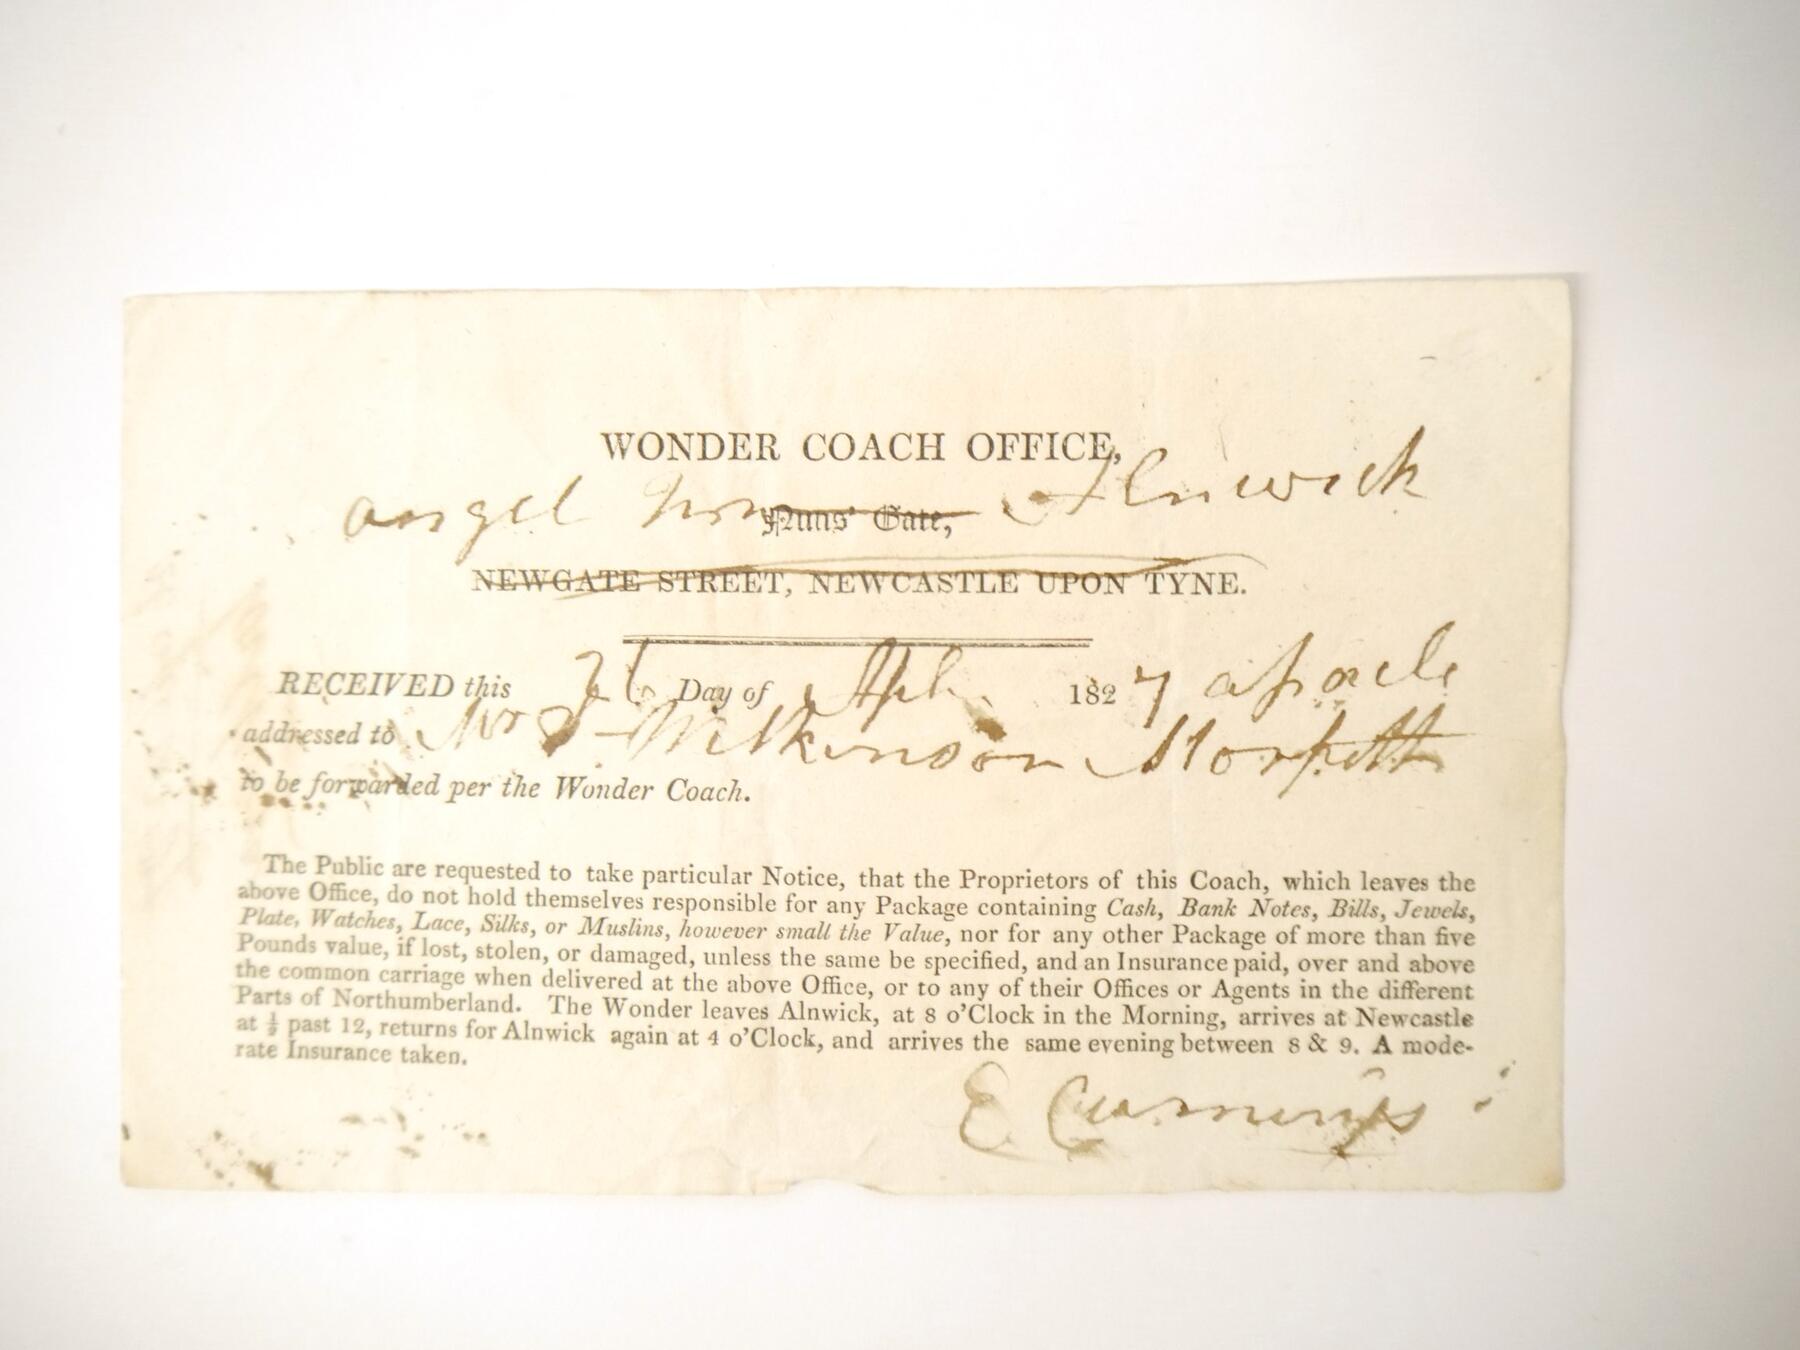 WONDER COACH OFFICE,
angel Inn Alnwick
Nuns' Gate,
NEWGATE STREET, NEWCASTLE UPON TYNE.
RECEIVED this 26 Day of Apl. 1827 a parcle
addressed to Mr J Wilkinson Morpeth
to be forwarded per the Wonder Coach.
The Public are requested to take particular Notice, that the Proprietors of this Coach, which leaves the
above Office, do not hold themselves responsible for any Package containing Cash, Bank Notes, Bills, Jewels,
Plate, Watches, Lace, Silks, or Muslins, however small the Value, nor for any other Package of more than five
Pounds value, if lost, stolen, or damaged, unless the same be specified, and an Insurance paid, over and above
the common carriage when delivered at the above Office, or to any of their Offices or Agents in the different
Parts of Northumberland. The Wonder leaves Alnwick, at 8 o'Clock in the Morning, arrives at Newcastle
at ½ past 12, returns for Alnwick again at 4 o'Clock, and arrives the same evening between 8 & 9. A mode-
rate Insurance taken.
E